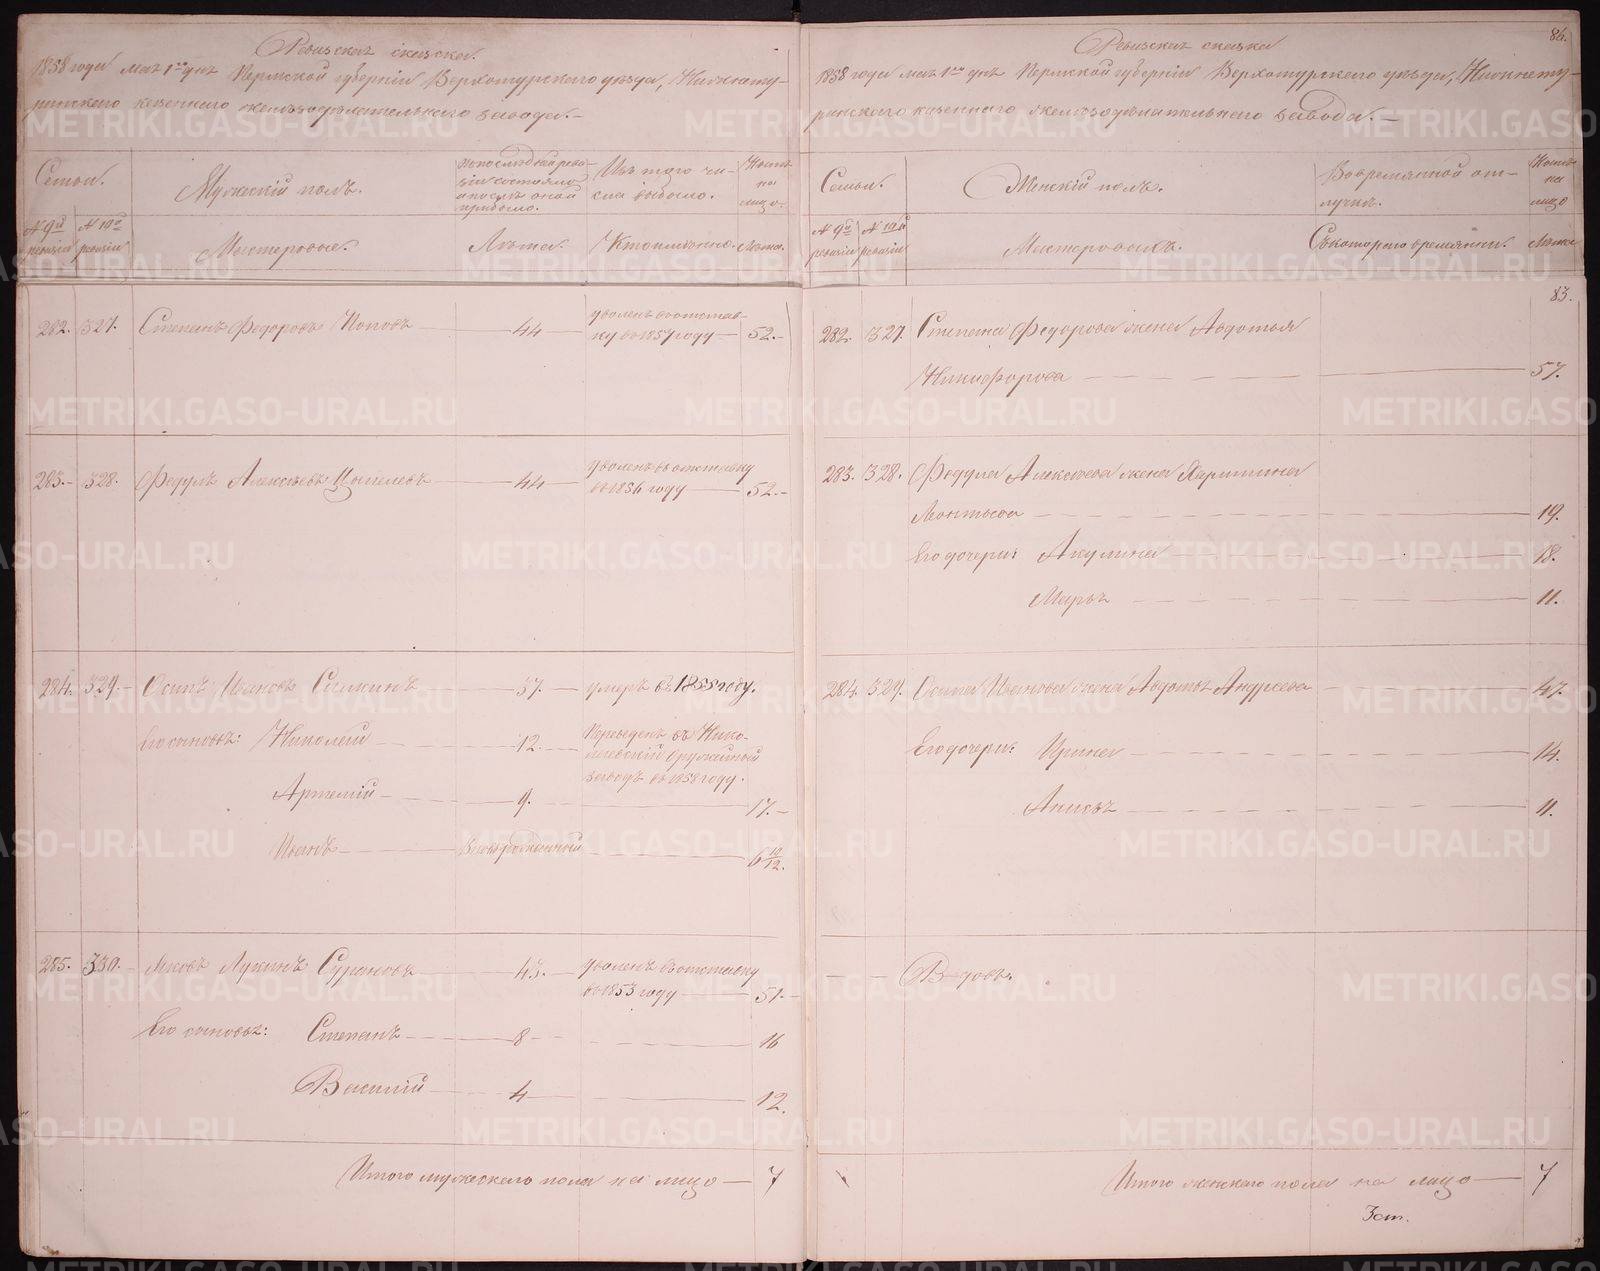 Ревизская сказка.
1858 года мая 1го дня Пермской губернiи Верхотурскаго уѣзда, Нижнету-
ринскаго казеннаго желѣзодѣлательнаго завода.—
Семьи.
Мужескiй полъ.
По послѣдней реви-
зiи состояло
и послѣ оной
прибыло.
Изъ того чи-
сла выбыло.
Нынѣ
на
лицо.
№ 9й
ревизiи
№ 10й
ревизiи
Мастеровые.
Лѣта.
Когда именно.
Лѣта.
282. 327. Степанъ Федоровъ Поповъ 44 уволенъ въ отстав-
ку въ 1857 году 52.
283. 328. Федулъ Алексѣевъ 44 уволенъ въ отставку
въ 1856 году 52.
284. 329. Осипъ Ивановъ 37. умеръ въ 1855 году.
Его сыновья: Николай 12. Переведенъ въ Нико-
лаевскiй оружейный
заводъ въ 1858 году.
Артемiй 9. 17.
Иванъ Вновьрожденный 6 10/12.
285. 330. Яковъ Лукинъ 43. уволенъ въ отставку
въ 1853 году 51.
Его сыновья: Степанъ 8 16
Василiй 4 12.
Итого мужескаго пола на лицо — 7
84.
Ревизская сказка
1858 года мая 1го дня Пермской губернiи Верхотурскаго уѣзда, Нижнету-
ринскаго казеннаго желѣзодѣлательнаго завода.—
Семьи.
Женскiй полъ.
Во временной от-
лучкѣ.
Нынѣ
на
лицо
№ 9й
ревизiи
№ 10й
ревизiи
Мастеровыхъ.
Съ котораго времяни.
Лѣта
83.
282. 327. Степана Федорова жена Авдотья
Никифорова 57.
283. 328. Федула Алексѣева жена
Леонтьева 19.
Его дочери: Акулина 18.
Марья 11.
284. 329. Осипа Иванова жена Авдотья Андреева 47.
Его дочери: Ирина 14.
Анисья 11.
Вдовъ.
Итого женскаго пола на лицо — 7
METRIKI.GASO-URAL.RU